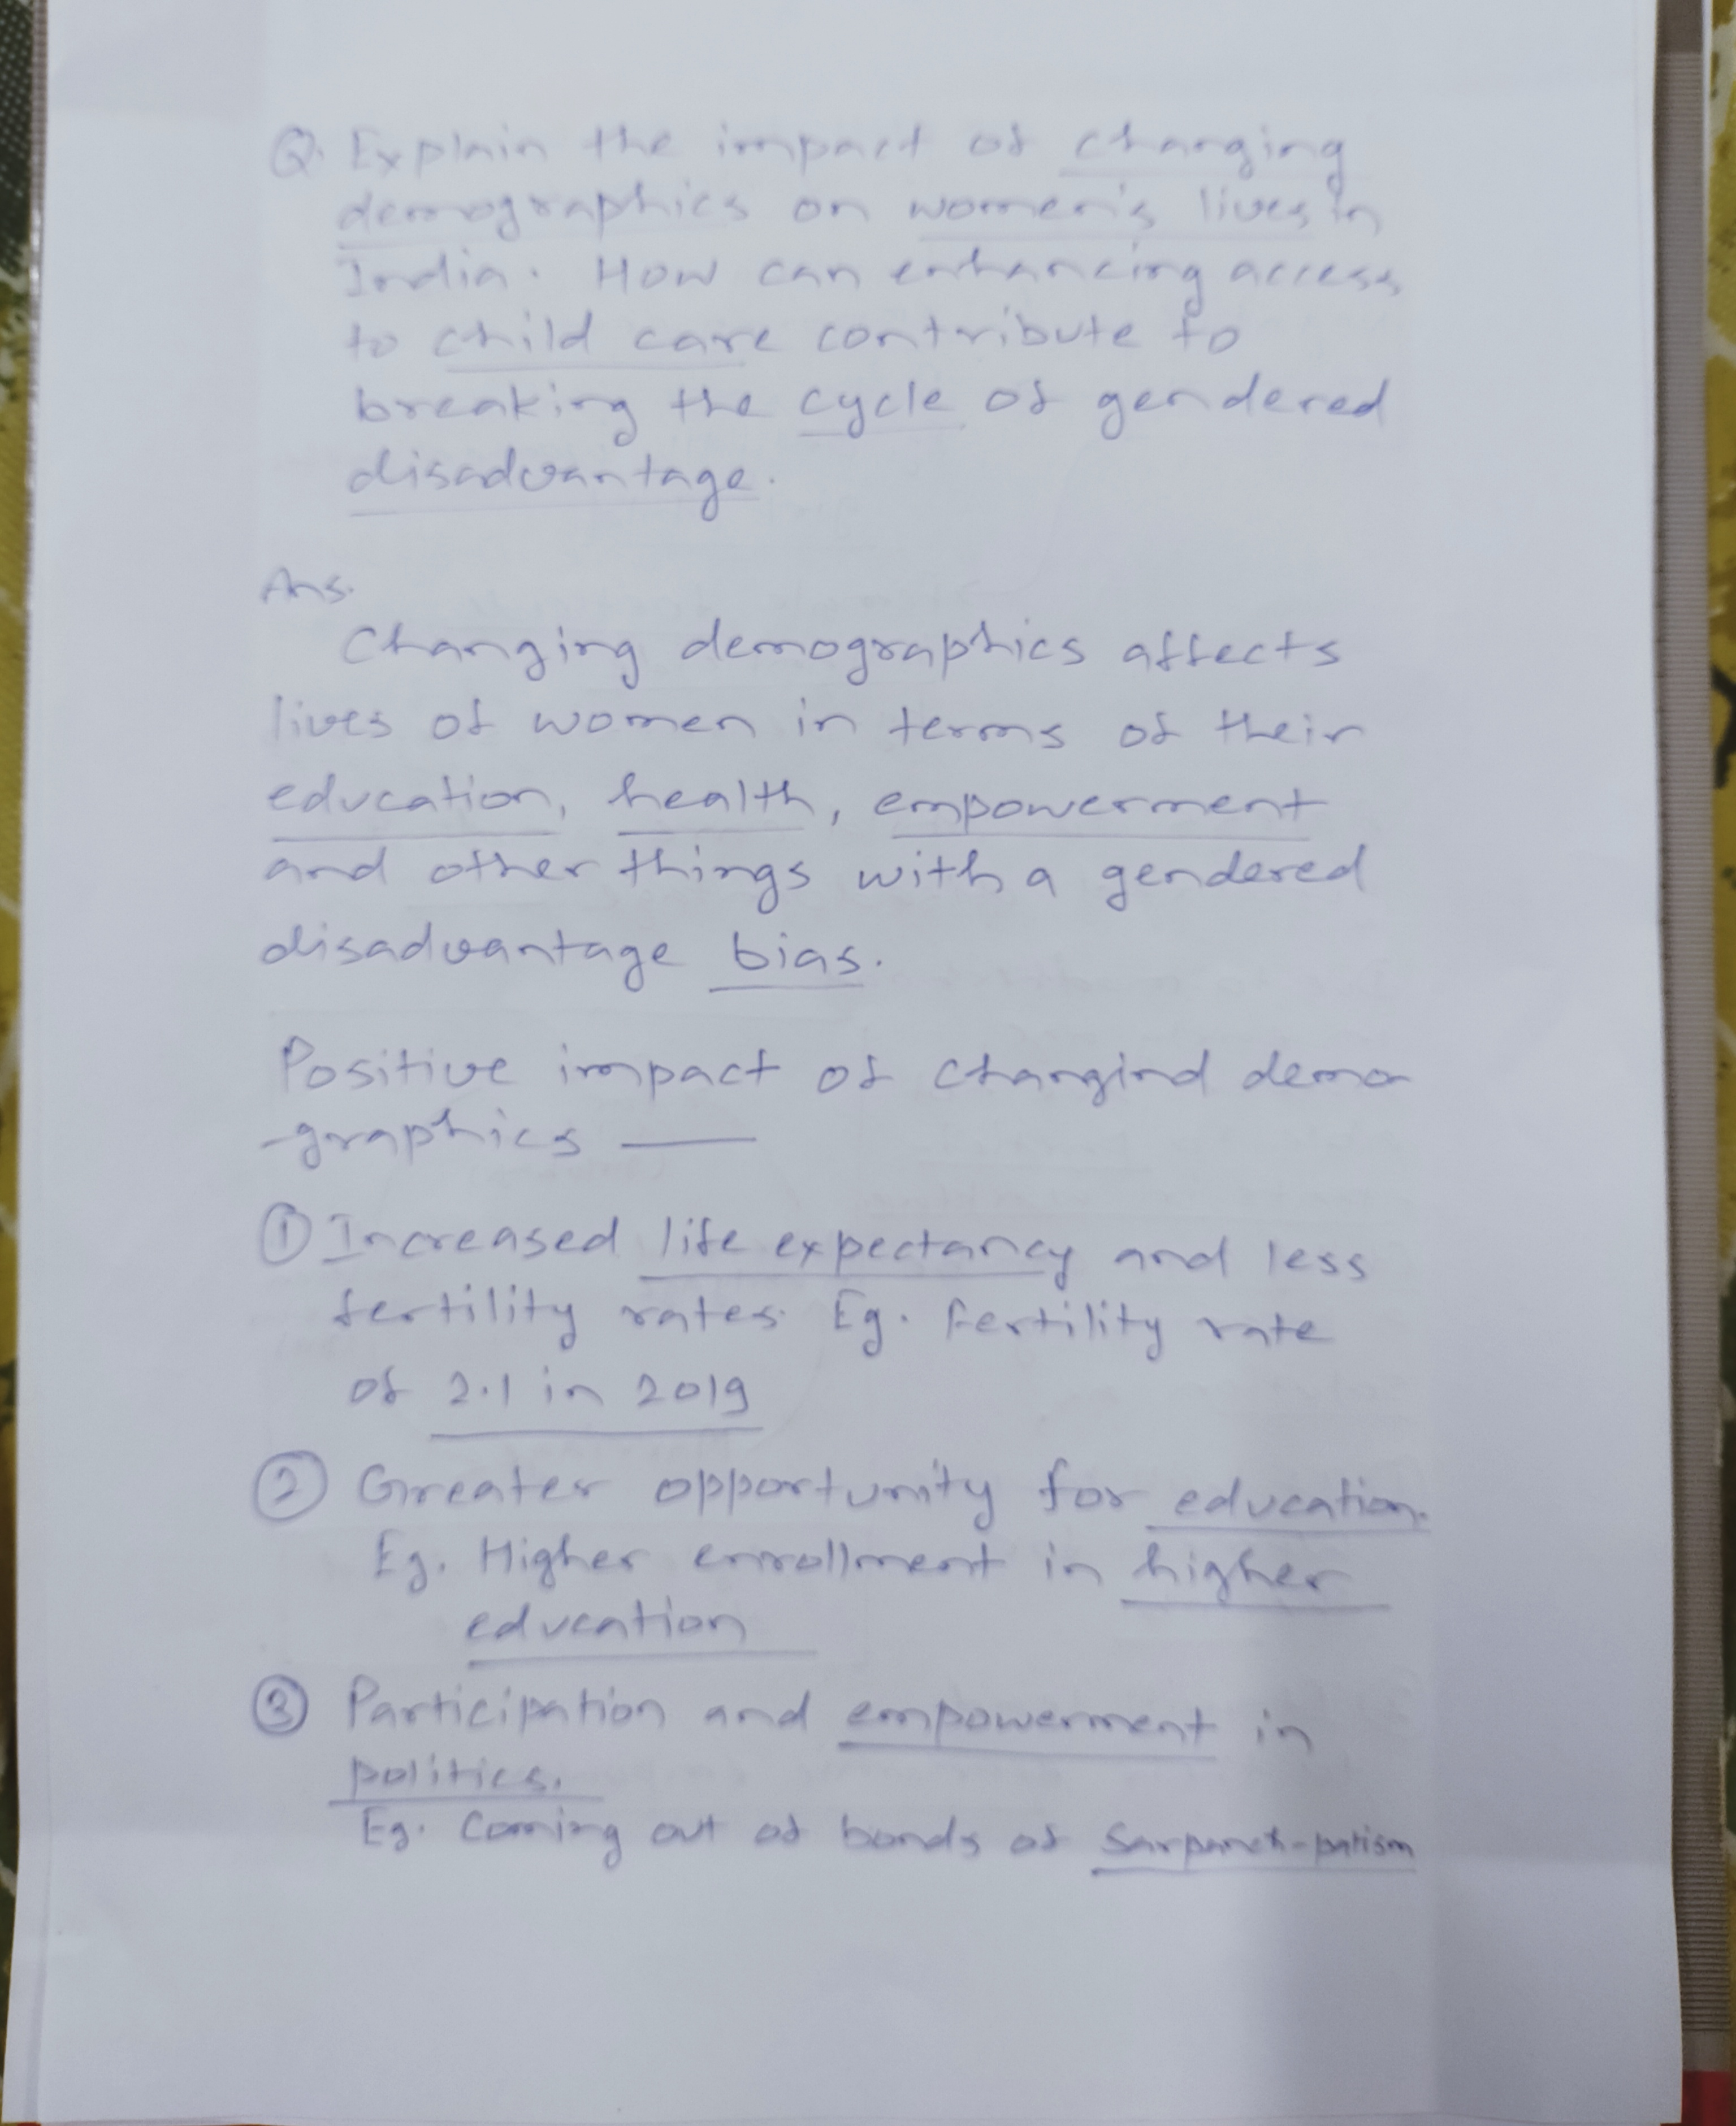 Q. Explain the impact of changing
demographics on women's lives in
India. How can enhancing access
to child care contribute to
breaking the cycle of gendered
disadvantage.
Ans.
Changing demographics affects
lives of women in terms of their
education, health, empowerment
and other things with a gendered
disadvantage bias.
Positive impact of changind demo
-graphics —
① Increased life expectancy and less
fertility rates. Eg. Fertility rate
of 2.1 in 2019
② Greater opportunity for education.
Eg. Higher enrollment in higher
education
③ Participation and empowerment in
politics.
Eg. Coming out of bonds of Sarpanch-patism